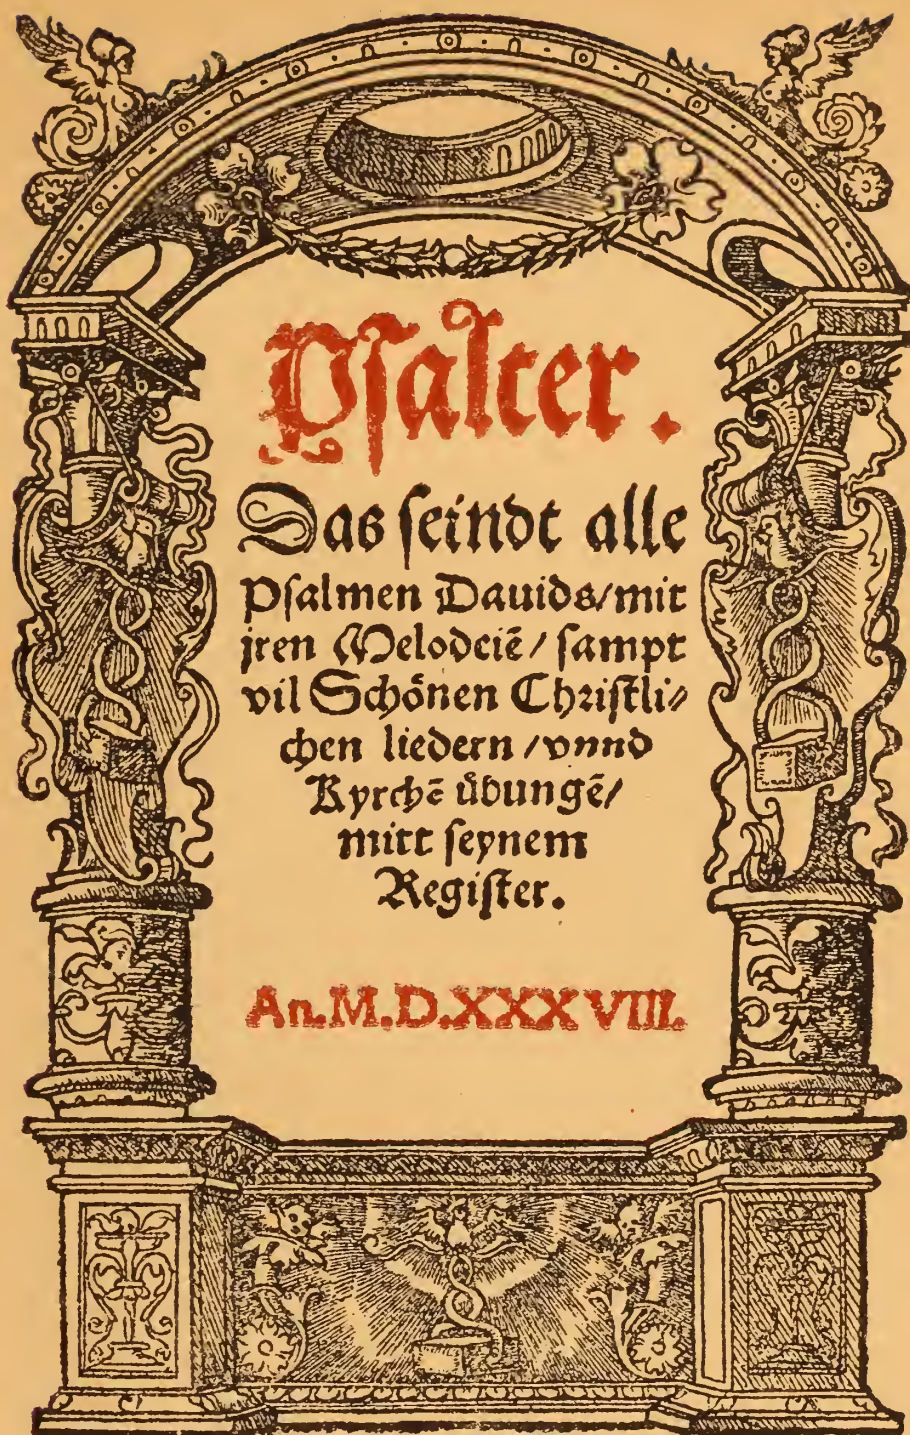 Psalter.
Das seindt alle
Psalmen Dauids/mit
jren Melodeiē/sampt
vil Schönen Christli⸗
chen liedern/vnnd
Kyrchē übungē/
mitt seynem
Register.
An.M.D.XXXVIII.